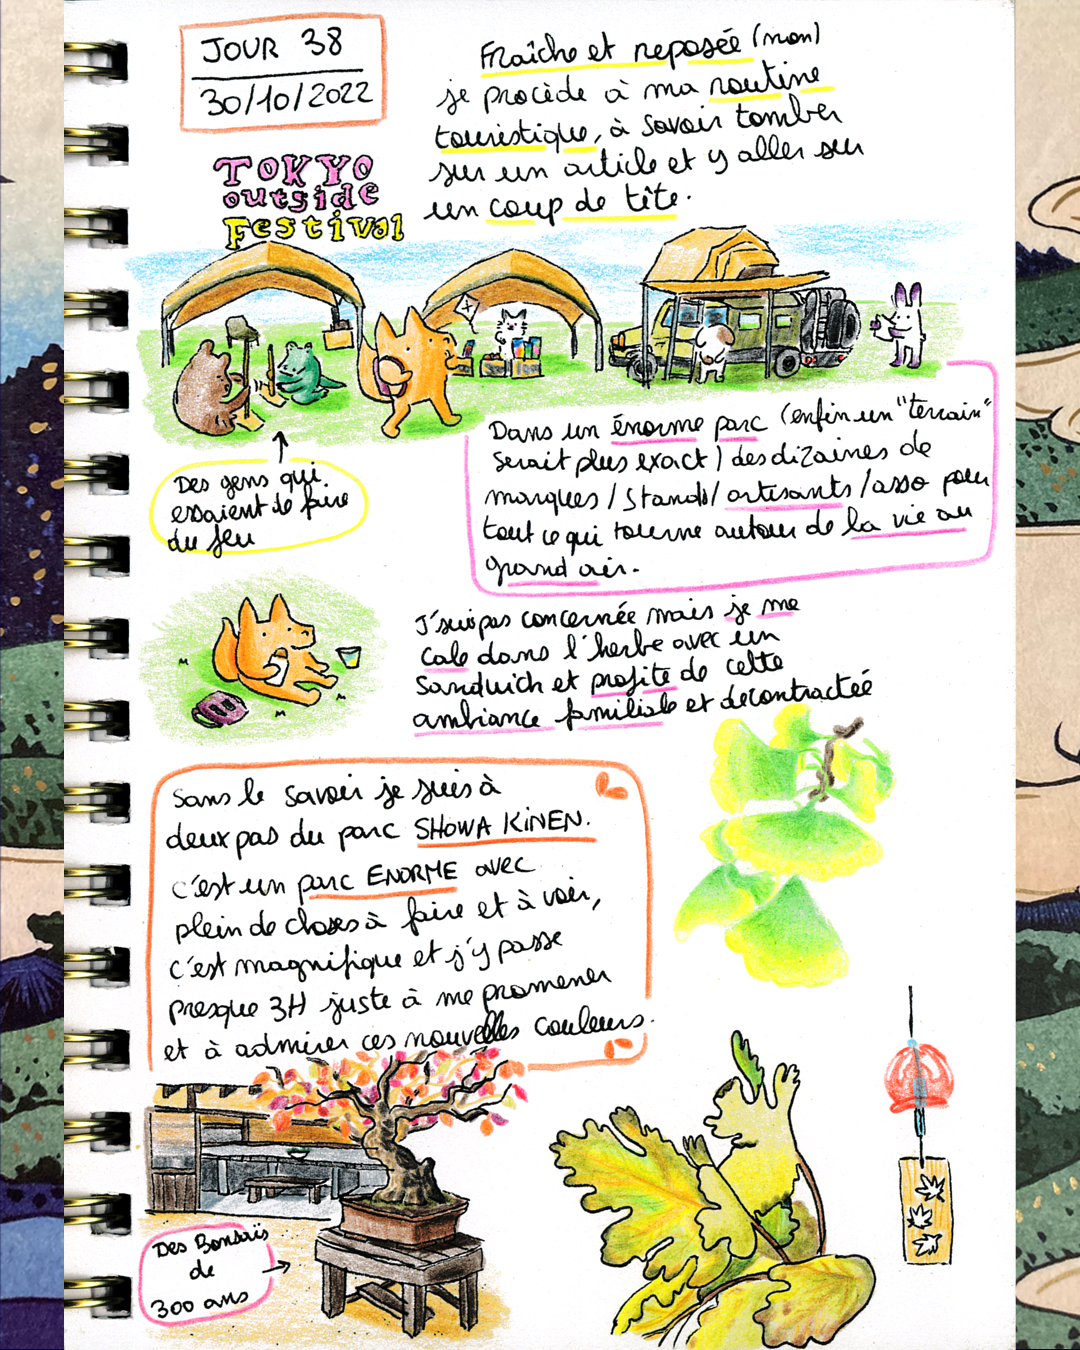 JOUR 38
30/10/2022
Fraîche et reposée (non)
je procède à ma routine
touristique, à savoir tomber
sur un article et y aller sur
un coup de tête.
TOKYO
outside
Festival
Dans un énorme parc (enfin un "terrain"
serait plus exact) des dizaines de
marques / stands / artisants / asso pour
tout ce qui tourne autour de la vie au
grand air.
Des gens qui
essaient de faire
du feu
J'suis pas concernée mais je me
cale dans l'herbe avec un
sandwich et profite de cette
ambiance familiale et décontractée
Sans le savoir je suis à
deux pas du parc SHOWA KINEN.
c'est un parc ENORME avec
plein de choses à faire et à voir,
c'est magnifique et j'y passe
presque 3H juste à me promener
et à admirer ces nouvelles couleurs.
Des Bonsaïs
de
300 ans